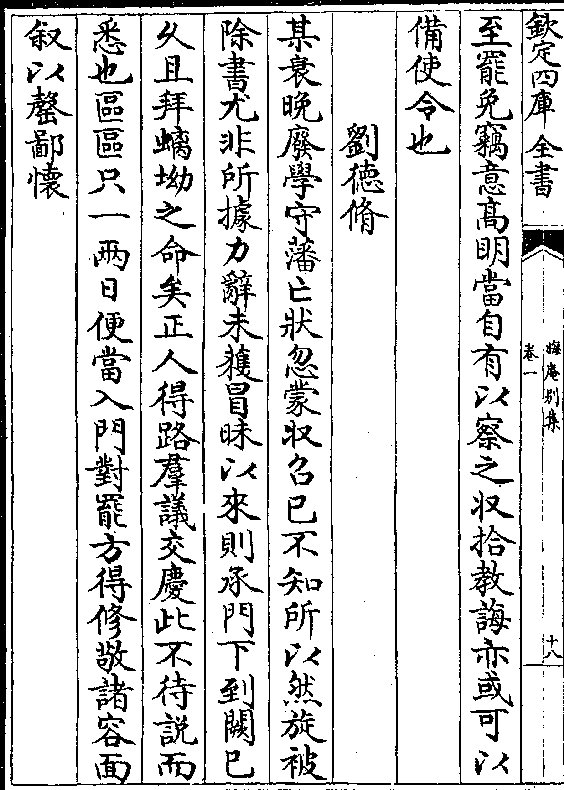 欽定四庫全書
晦庵别集
卷一
十八
至罷免竊意髙明當自有以察之収拾教誨亦或可以
備使令也
劉德脩
某衰晚廢學守藩亡狀忽蒙収召已不知所以然旋被
除書尤非所據力辭未獲冒昧以來則承門下到闕已
乆且拜螭坳之命矣正人得路羣議交慶此不待説而
悉也區區只一兩日便當入門對罷方得修敬諸容面
叙以罄鄙懷